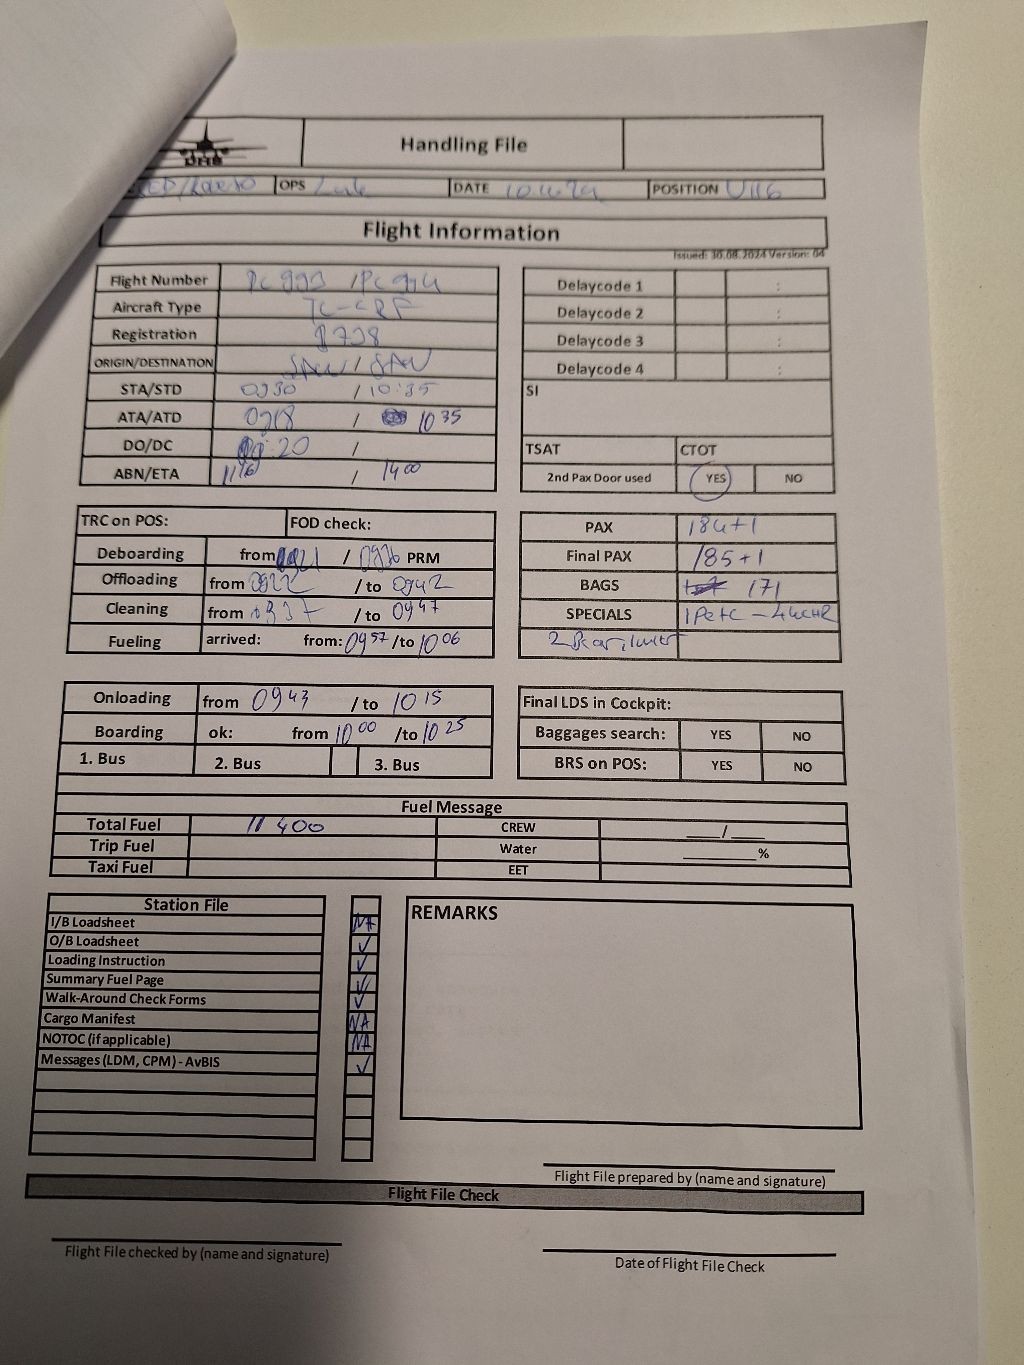 Handling File
OPS
DATE POSITION U116
Flight Information
Issued: 30.08.2024 Version: 04
Flight Number PC 993 / PC 994
Aircraft Type TC-CRF
Registration B738
ORIGIN/DESTINATION SAW / SAW
STA/STD 0930 / 10:35
ATA/ATD 0918 / 1035
DO/DC :20 /
ABN/ETA 1116 / 1400
Delaycode 1 :
Delaycode 2 :
Delaycode 3 :
Delaycode 4 :
SI
TSAT CTOT
2nd Pax Door used YES NO
TRC on POS: FOD check:
Deboarding from 0921 / 0926 PRM
Offloading from 0922 / to 0942
Cleaning from / to 0947
Fueling arrived: from: 0957 /to 1006
PAX 184+1
Final PAX 185+1
BAGS 171
SPECIALS 1 PETC -
2
Onloading from 0943 / to 1015
Boarding ok: from 1000 /to 1025
1. Bus 2. Bus 3. Bus
Final LDS in Cockpit:
Baggages search: YES NO
BRS on POS: YES NO
Fuel Message
Total Fuel 11 400 CREW ____/____
Trip Fuel Water ________%
Taxi Fuel EET
Station File
I/B Loadsheet NA
O/B Loadsheet ✓
Loading Instruction ✓
Summary Fuel Page ✓
Walk-Around Check Forms ✓
Cargo Manifest NA
NOTOC (if applicable) NA
Messages (LDM, CPM) - AvBIS ✓
REMARKS
Flight File prepared by (name and signature)
Flight File Check
Flight File checked by (name and signature)
Date of Flight File Check